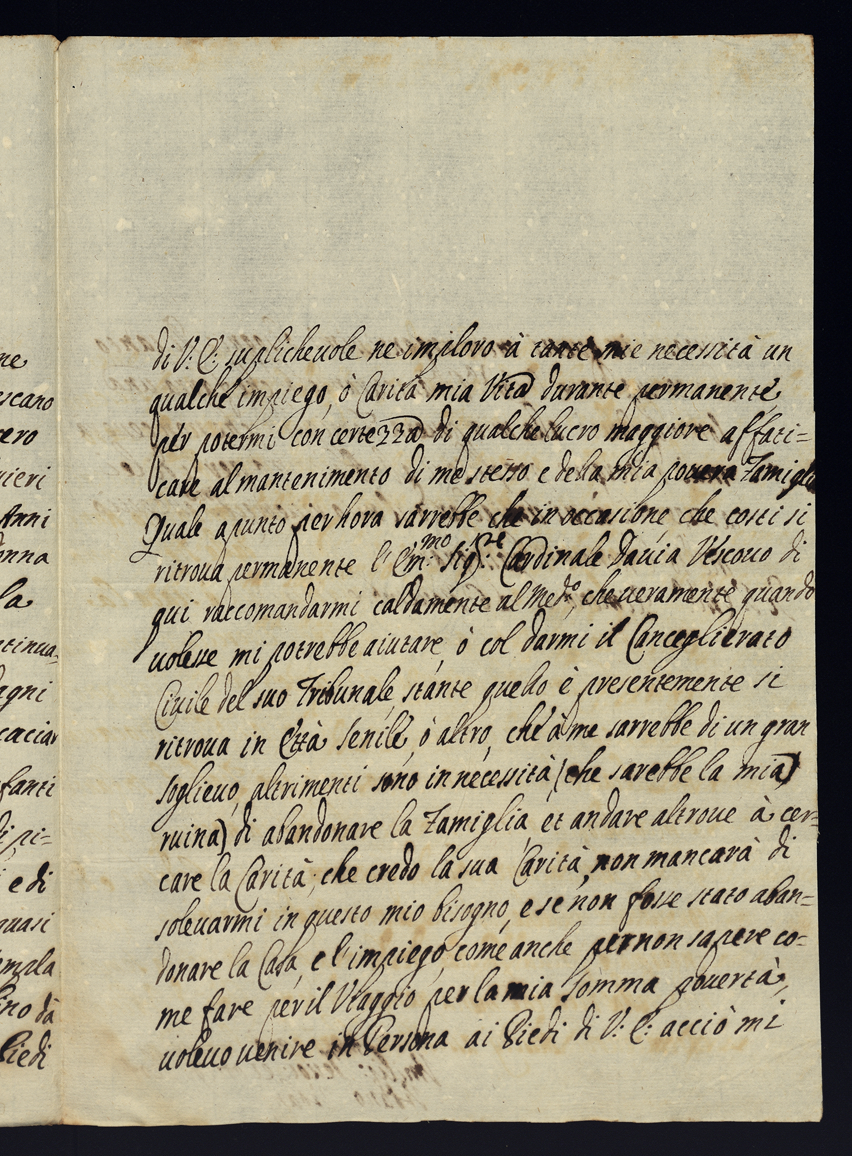 ne
escano
cero
rieri
Anni
onna
la
tinua-
agni
caciar
fanti
di pi-
e di
quasi
empla
ino dà
Piedi
di V: E: suplicheuole ne imploro à tante mie necessità un
qualche impiego, ò Carità mia Vita durante permanente
per potermi con certezza di qualche lucro maggiore affati=
care al mantenimento di me stesso e della mia pouera Famiglia
Quale apunto per hora sarrebbe che in occasione che costì si
ritroua permanente l'Em:mo Sig:re Cardinale Dauia Vescouo di
qui raccomandarmi caldamente al Med:o, che ueramente quando
uolesse mi potrebbe aiutare ò col darmi il Canceglierato
Ciuile del suo Tribunale, stante quello è presentemente si
ritroua in Età Senile, ò altro, che à me sarrebbe di un gran
soglieuo, altrimenti sono in necessità (che sarebbe la mia
ruina) di abandonare la Famiglia et andare altroue à cer=
care la Carità; che credo la sua Carità non mancarà di
soleuarmi in questo mio bisogno, e se non fosse stato aban=
donare la Casa, e l'impiego come anche per non sapere co=
me fare per il Viaggio per la mia somma pouertà,
uoleuo uenire in Persona ai Piedi di V: E: acciò mi